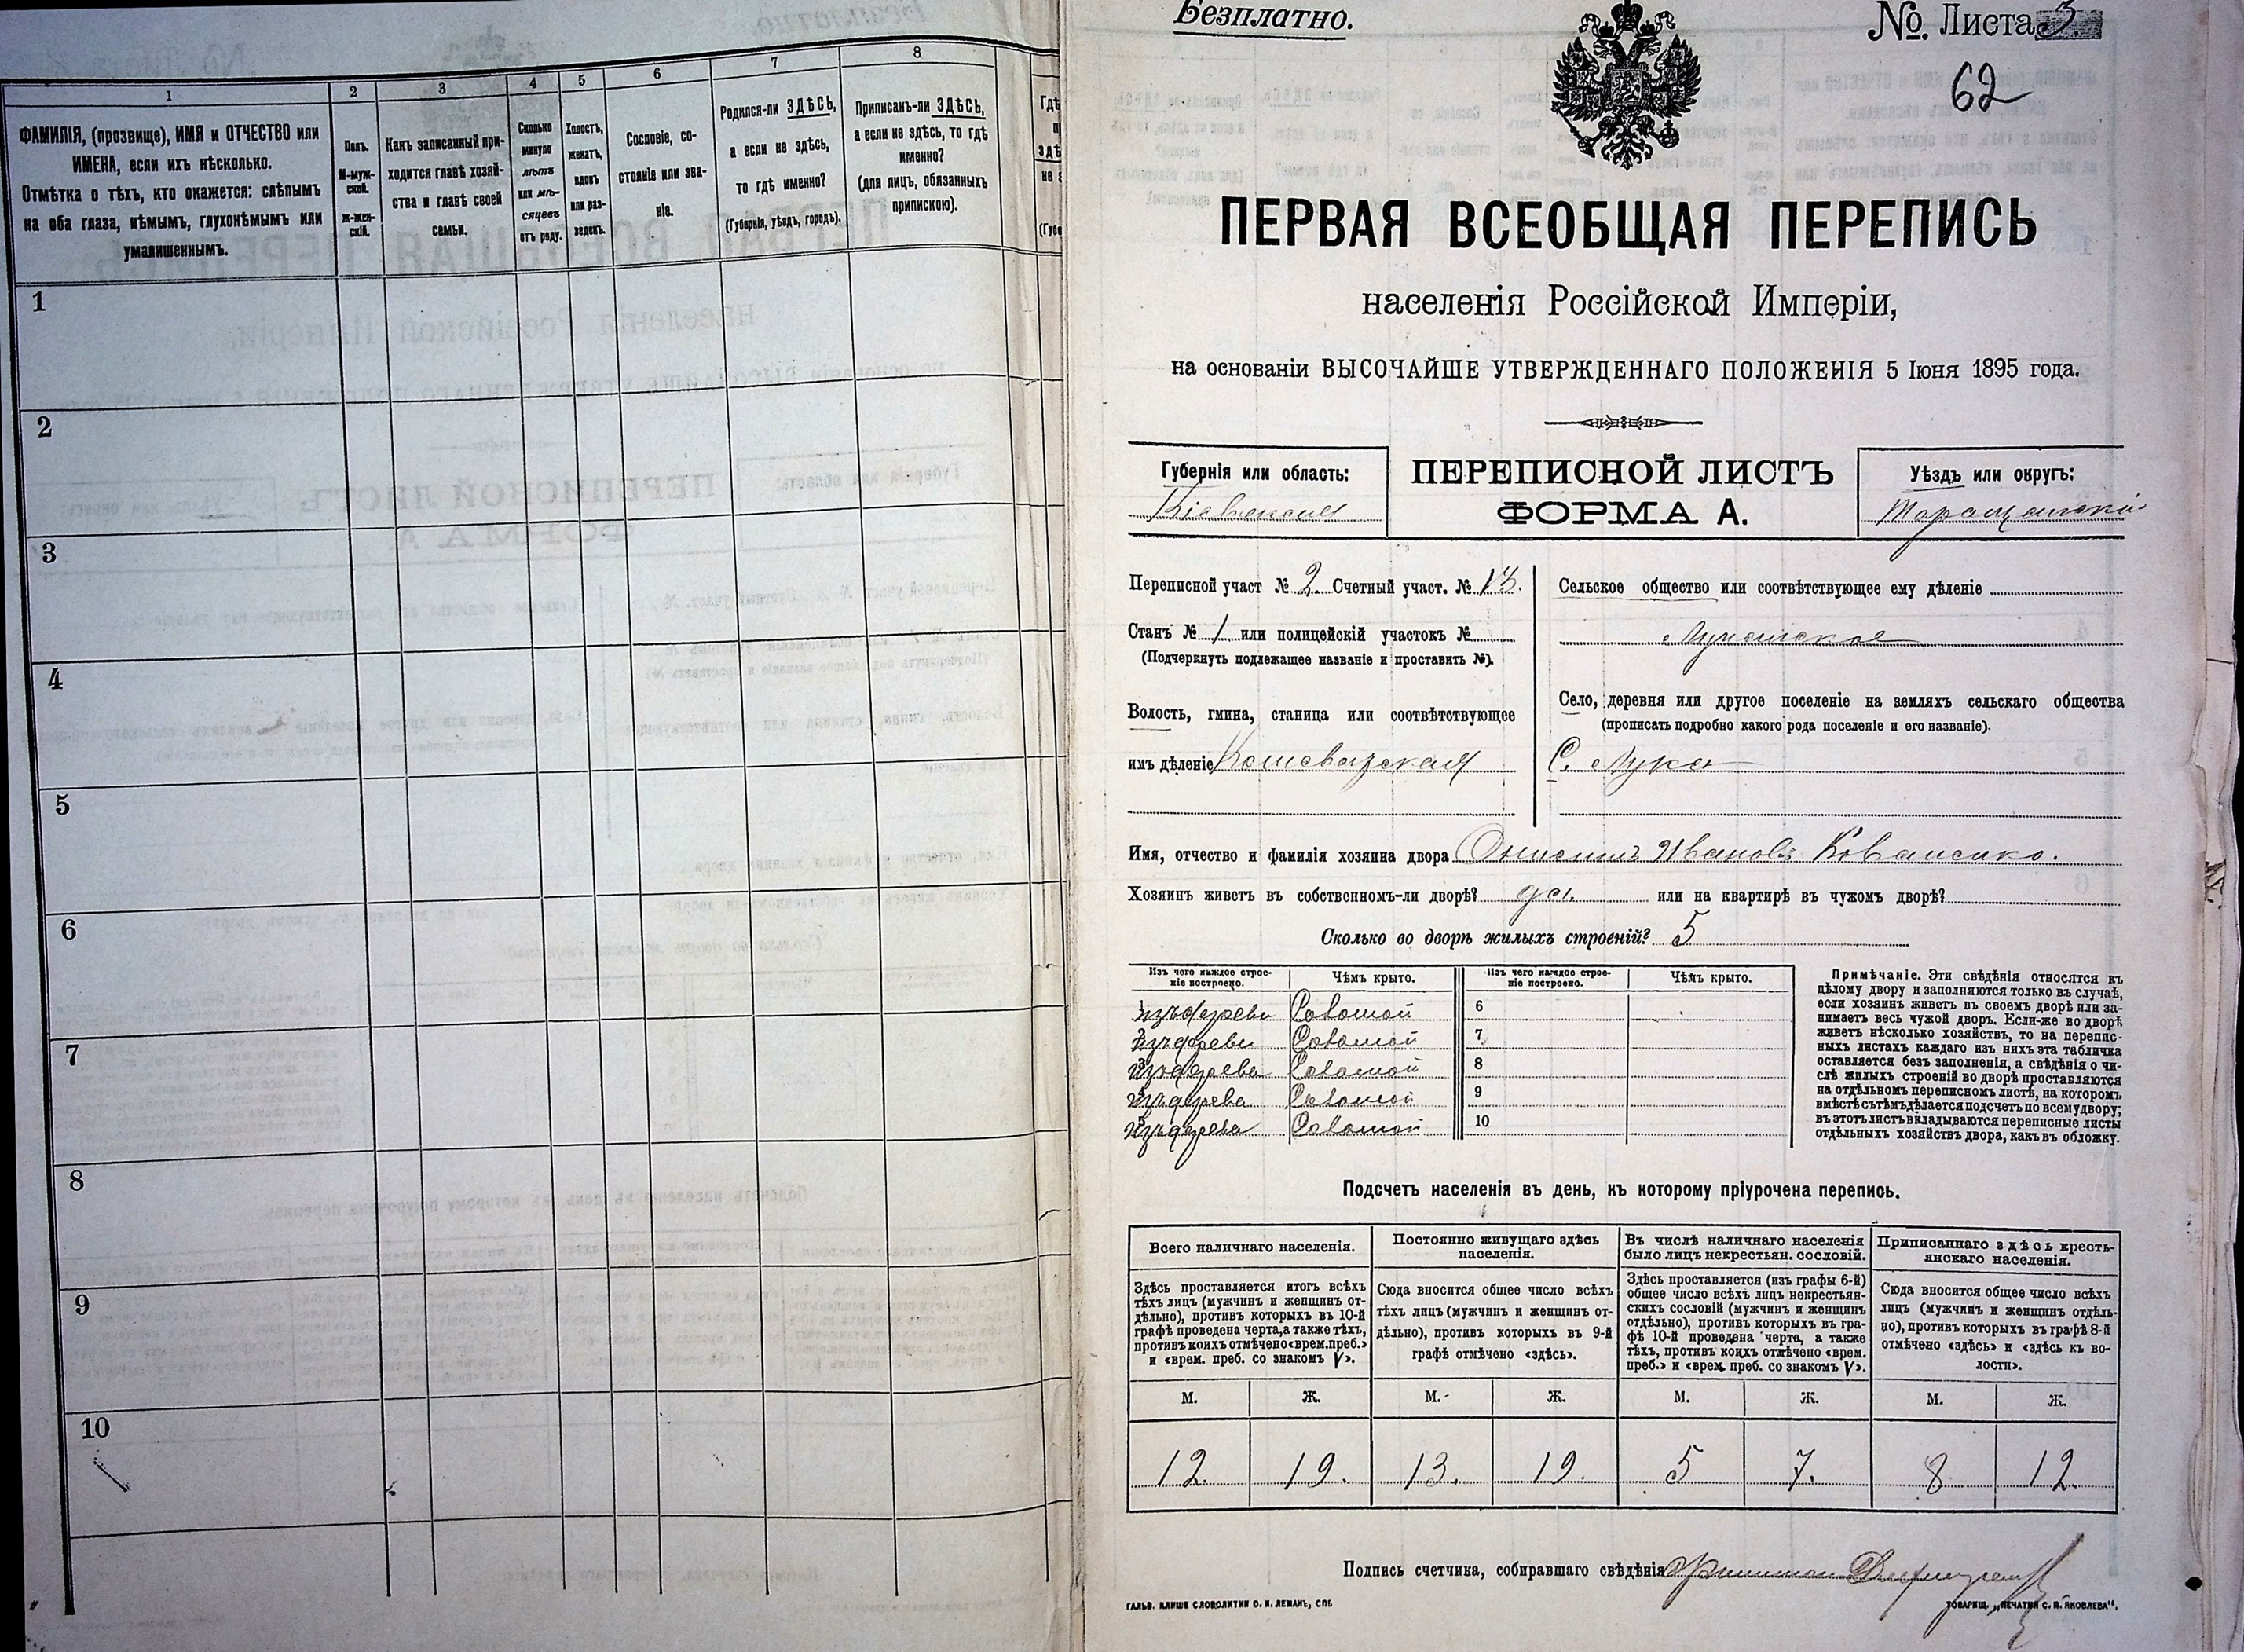 1
2
3
4
5
6
7
8
ФАМИЛІЯ, (прозвище), ИМЯ и ОТЧЕСТВО или
ИМЕНА, если ихъ нѣсколько.
Отмѣтка о тѣхъ, кто окажется: слѣпымъ
на оба глаза, нѣмымъ, глухонѣмымъ или
умалишеннымъ.
Полъ.
М-муж-
ской.
Ж-жен-
скій.
Какъ записанный при-
ходится главѣ хозяй-
ства и главѣ своей
семьи.
Сколько
минуло
лѣтъ
или мѣ-
сяцевъ
отъ роду.
Холостъ,
женатъ,
вдовъ
или раз-
веденъ.
Сословіе, со-
стояніе или зва-
ніе.
Родился-ли ЗДѢСЬ,
а если не здѣсь,
то гдѣ именно?
(Губернія, уѣздъ, городъ).
Приписанъ-ли ЗДѢСЬ,
а если не здѣсь, то гдѣ
именно?
(для лицъ, обязанныхъ
припискою).
1
2
3
4
5
6
7
8
9
10
Безплатно.
№. Листа 3.
62
ПЕРВАЯ ВСЕОБЩАЯ ПЕРЕПИСЬ
населенія Россійской Имперіи,
на основаніи ВЫСОЧАЙШЕ УТВЕРЖДЕННАГО ПОЛОЖЕНІЯ 5 Іюня 1895 года.
Губернія или область:
Кіевская
ПЕРЕПИСНОЙ ЛИСТЪ
ФОРМА А.
Уѣздъ или округъ:
Таращанскій
Переписной участ № 2. Счетный участ. № 13.
Станъ № 1 или полицейскій участокъ №
(Подчеркнуть подлежащее названіе и проставить №).
Волость, гмина, станица или соотвѣтствующее
имъ дѣленіе Кошеватская
Сельское общество или соотвѣтствующее ему дѣленіе
Лучанское
Село, деревня или другое поселеніе на земляхъ сельскаго общества
(прописать подробно какого рода поселеніе и его названіе).
С. Лука
Имя, отчество и фамилія хозяина двора Онисимъ Ивановъ Коваленко.
Хозяинъ живетъ въ собственномъ-ли дворѣ? да. или на квартирѣ въ чужомъ дворѣ?
Сколько во дворѣ жилыхъ строеній? 5
Изъ чего каждое строе-
ніе построено.
Чѣмъ крыто.
Изъ чего каждое строе-
ніе построено.
Чѣмъ крыто.
1 изъ дерева Соломой 6
2 изъ дерева Соломой 7
3 изъ дерева Соломой 8
4 изъ дерева Соломой 9
5 изъ дерева Соломой 10
Примѣчаніе. Эти свѣдѣнія относятся къ
цѣлому двору и заполняются только въ случаѣ,
если хозяинъ живетъ въ своемъ дворѣ или за-
нимаетъ весь чужой дворъ. Если-же во дворѣ
живетъ нѣсколько хозяйствъ, то на перепис-
ныхъ листахъ каждаго изъ нихъ эта табличка
оставляется безъ заполненія, а свѣдѣнія о чи-
слѣ жилыхъ строеній во дворѣ проставляются
на отдѣльномъ переписномъ листѣ, на которомъ
вмѣстѣ съ тѣмъ дѣлается подсчетъ по всему двору;
въ этотъ листъ вкладываются переписные листы
отдѣльныхъ хозяйствъ двора, какъ въ обложку.
Подсчетъ населенія въ день, къ которому пріурочена перепись.
Всего наличнаго населенія.
Здѣсь проставляется итогъ всѣхъ
тѣхъ лицъ (мужчинъ и женщинъ от-
дѣльно), противъ которыхъ въ 10-й
графѣ проведена черта, а также тѣхъ,
противъ коихъ отмѣчено «врем. преб.»
и «врем. преб. со знакомъ V».
Постоянно живущаго здѣсь
населенія.
Сюда вносится общее число всѣхъ
тѣхъ лицъ (мужчинъ и женщинъ от-
дѣльно), противъ которыхъ въ 9-й
графѣ отмѣчено «здѣсь».
Въ числѣ наличнаго населенія
было лицъ некрестьян. сословій.
Здѣсь проставляется (изъ графы 6-й)
общее число всѣхъ лицъ некрестьян-
скихъ сословій (мужчинъ и женщинъ
отдѣльно), противъ которыхъ въ гра-
фѣ 10-й проведена черта, а также
тѣхъ, противъ коихъ отмѣчено «врем.
преб.» и «врем. преб. со знакомъ V».
Приписаннаго здѣсь кресть-
янскаго населенія.
Сюда вносится общее число всѣхъ
лицъ (мужчинъ и женщинъ отдѣль-
но), противъ которыхъ въ графѣ 8-й
отмѣчено «здѣсь» и «здѣсь къ во-
лости».
М. Ж. М. Ж. М. Ж. М. Ж.
12. 19. 13. 19. 5 7. 8 12.
Подпись счетчика, собиравшаго свѣдѣнія
ГАЛЬВ. КЛИШЕ СЛОВОЛИТНИ О. И. ЛЕМАНЪ, СПБ
ТОВАРИЩ. „ПЕЧАТНЯ С. П. ЯКОВЛЕВА“.